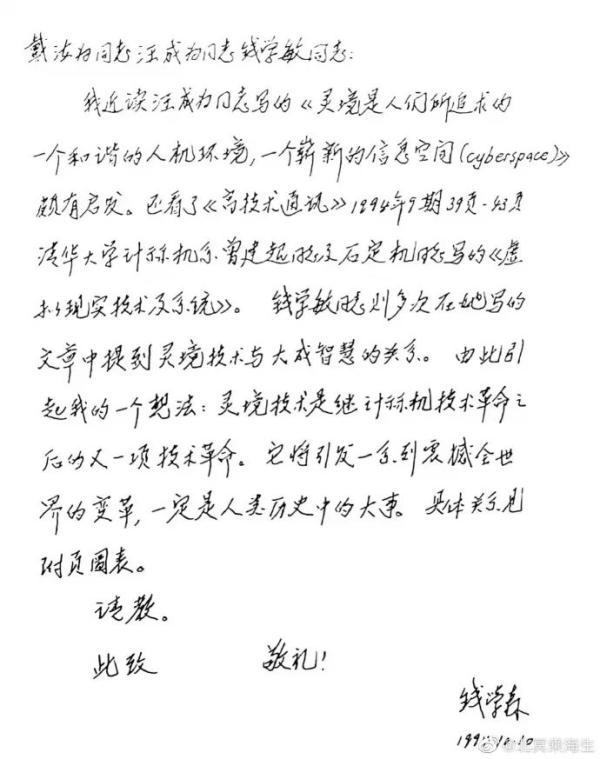 戴汝为同志汪成为同志钱学敏同志：
我近读汪成为同志写的《灵境是人们所追求的
一个和谐的人机环境，一个崭新的信息空间(cyberspace)》
颇有启发。还看了《高技术通讯》1994年9期39页-43页
清华大学计祘机系曾建超同志及石定机同志写的《虚
拟现实技术及系统》。钱学敏同志则多次在她写的
文章中提到灵境技术与大成智慧的关系。由此引
起我的一个想法：灵境技术是继计祘机技术革命之
后的又一项技术革命。它将引发一系列震撼全世
界的变革，一定是人类历史中的大事。具体关系见
附页圖表。
请教。
此致 敬礼！
钱学森
1994.10.10
@北冥乘海生